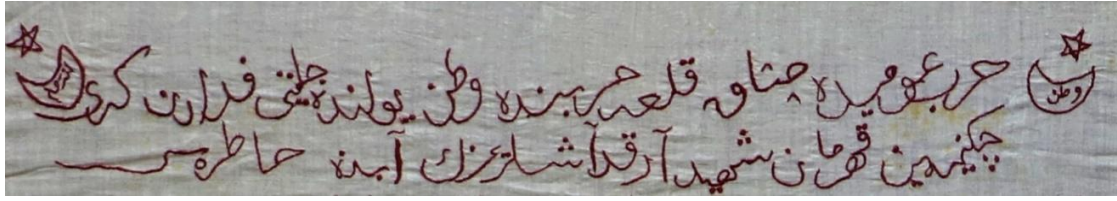 وطن حرب عموميده چناق قلعه حربنده وطن يولنده جاننی فدا ادن كری
چكنميه ين قهرمان شهيد آرقداشلريمزك آبدهٔ خاطره سی